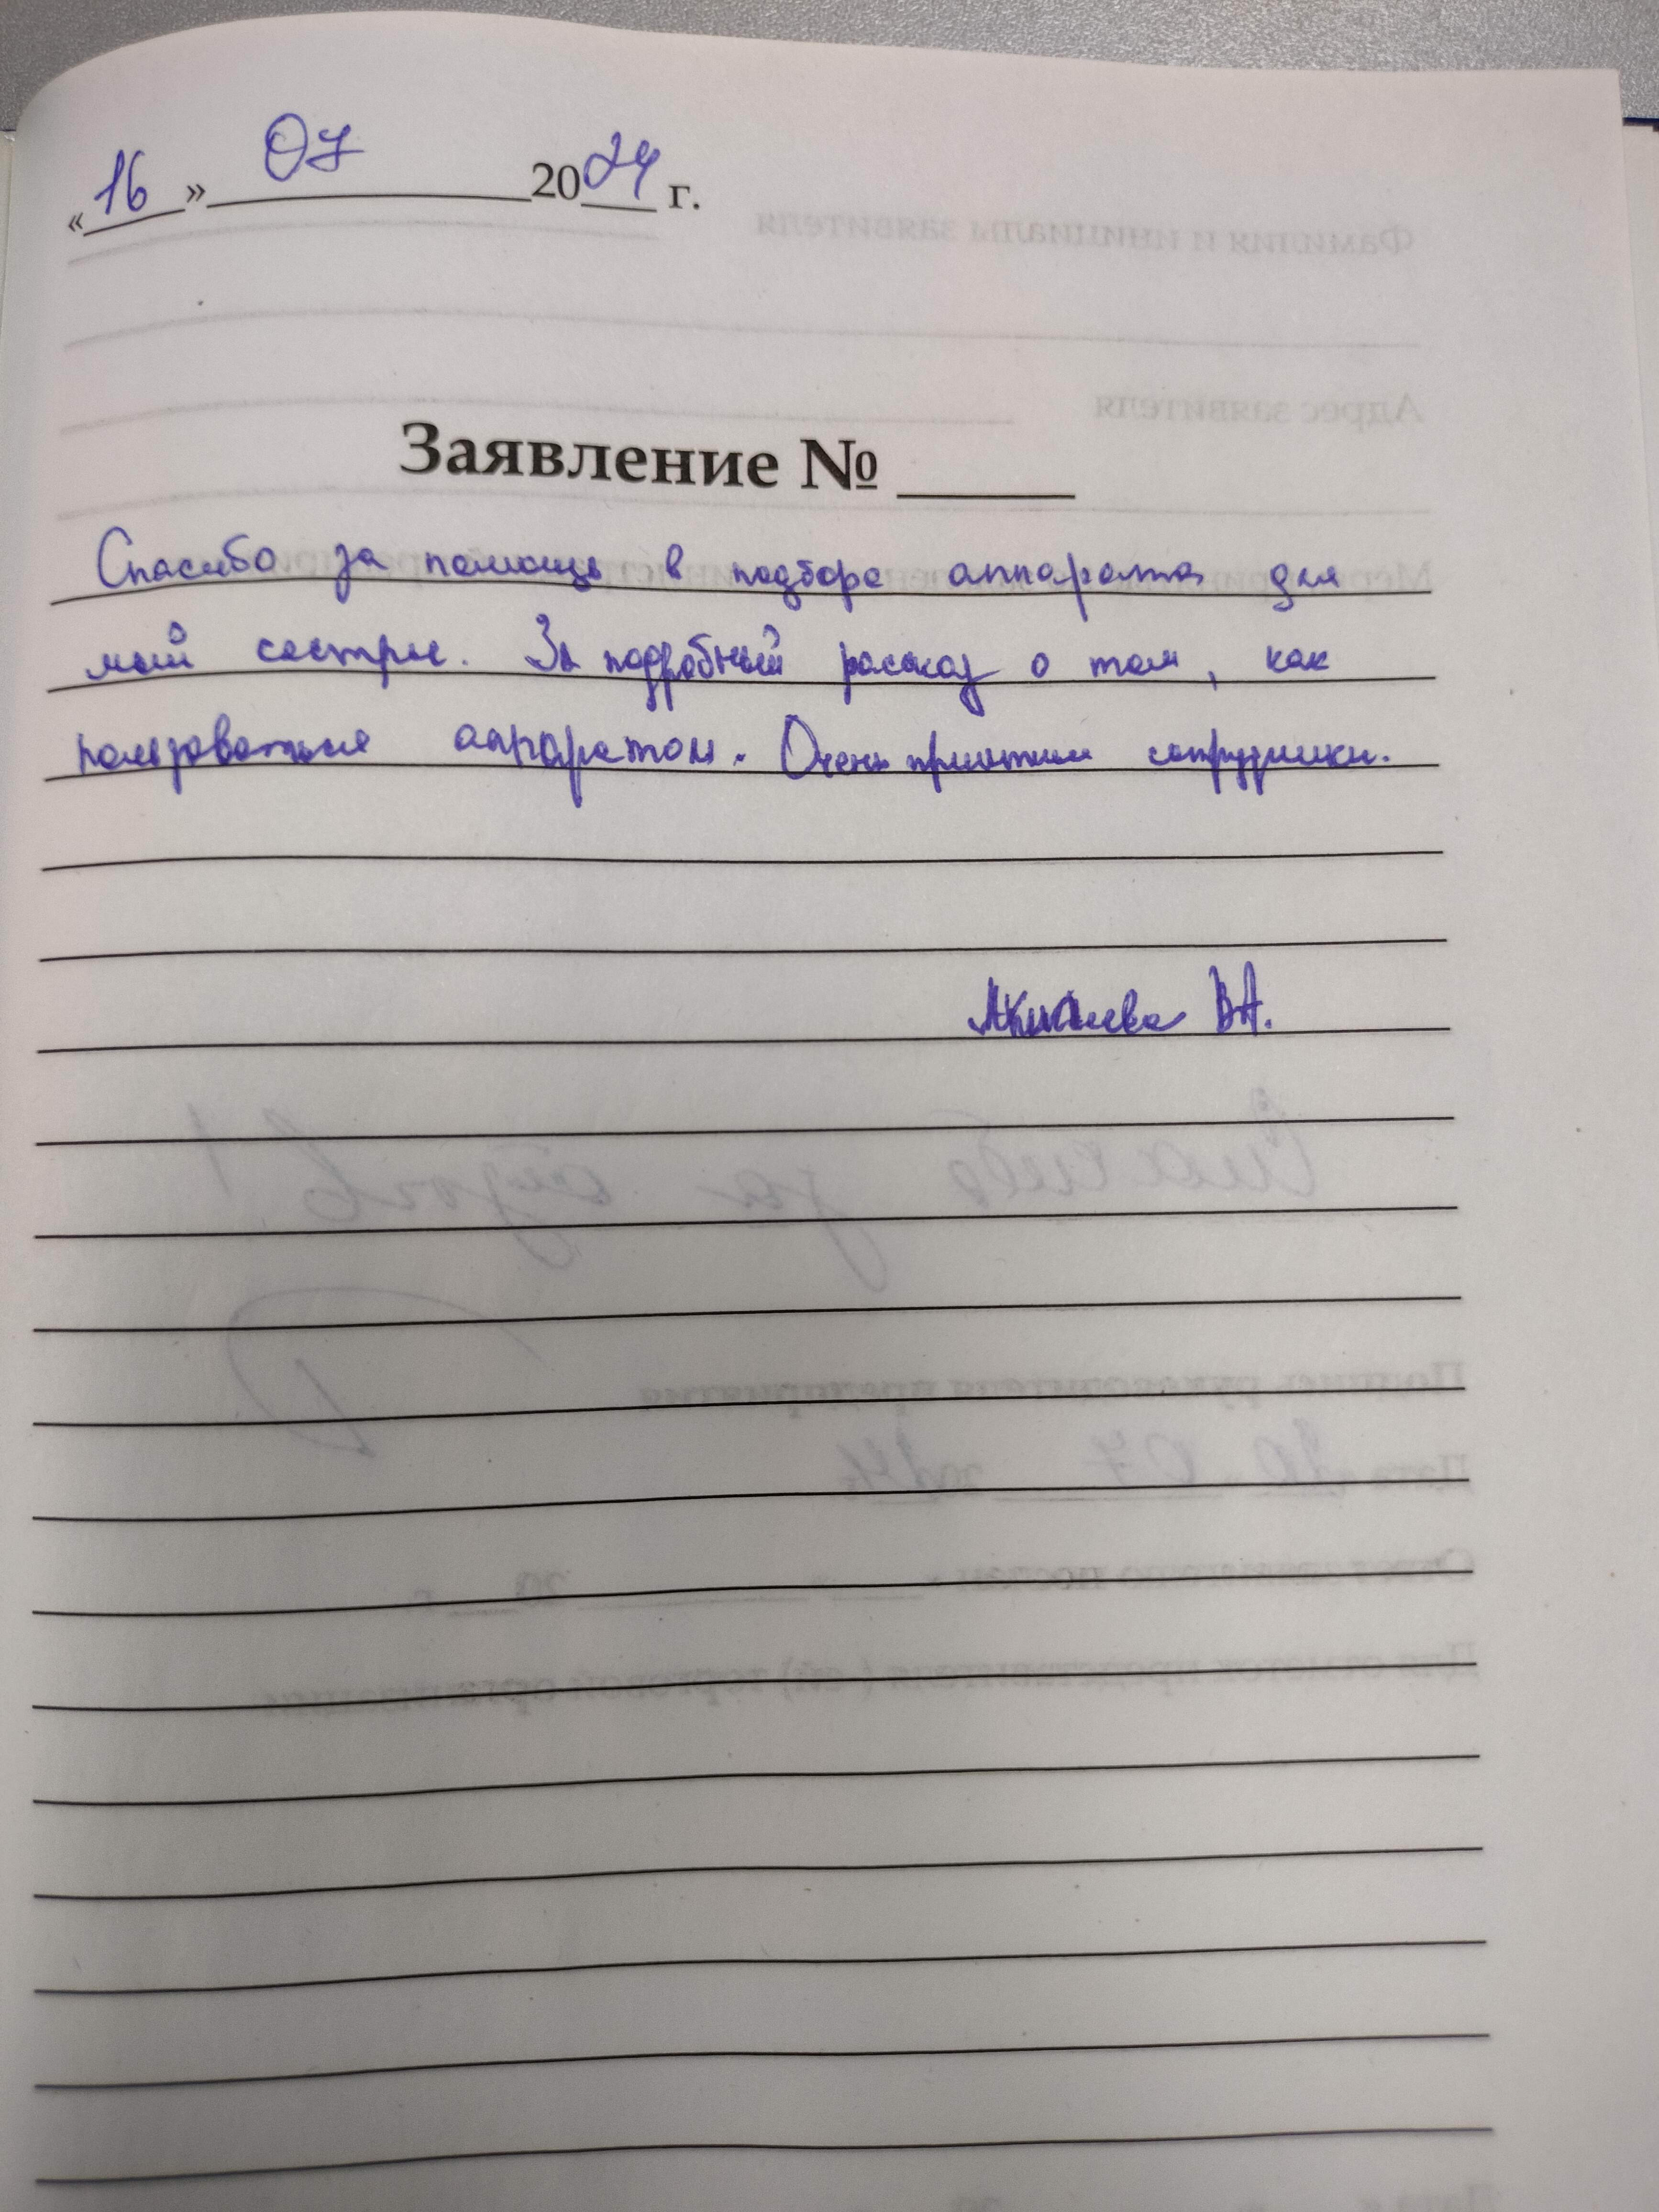 «16» 07 2024 г.
Заявление № ____
Спасибо за помощь в подборе аппарата для
моей сестры. За подробный рассказ о том, как
пользоваться аппаратом. Очень приятные сотрудники.
В.А.